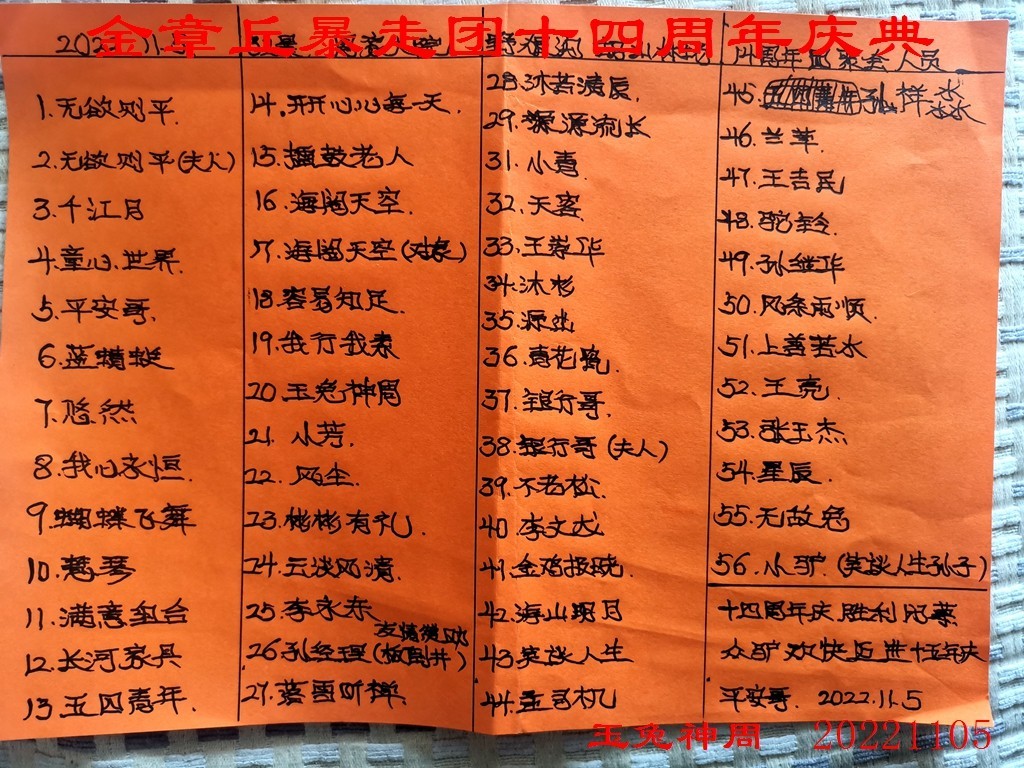 金章丘暴走团十四周年庆典
14周年 聚会人员
1.无欲则平.
2.无欲则平(夫人)
3.千江月
4.童心世界.
5.平安哥.
6.蓝蜻蜓
7.悠然
8.我心永恒.
9.蝴蝶飞舞
10.慧琴
11.满意组合
12.长河家具
13.五四青年.
14.开开心心每一天.
15.擂鼓老人
16.海阔天空.
17.海阔天空(对象)
18.容易知足.
19.我行我素
20.玉兔神周
21.小芳.
22.风尘.
23.彬彬有礼.
24.云淡风清.
25.李永东
26.孙经理(
27.蕉雨听禅
28.沐若清辰
29.源源流长
31.小青
32.天客
33.王崇华
34.沐杉
35.源出
36.青花瓷.
37.银行哥.
38.银行哥(夫人)
39.不老松.
40.李文成
41.金鸡报晓.
42.海山明月
43.笑谈人生
44.王司机
45. 孙 祥 水
46.兰苹.
47.王吉民
48.玲
49.孙继华
50.风条雨顺.
51.上善若水
52.王亮.
53.张玉杰
54.星辰
55.无敌兔
56.小驴.(笑谈人生孙子)
十四周年庆胜利闭幕
众驴欢快迈进十五年庆
平安哥. 2022.11.5
玉兔神周 20221105